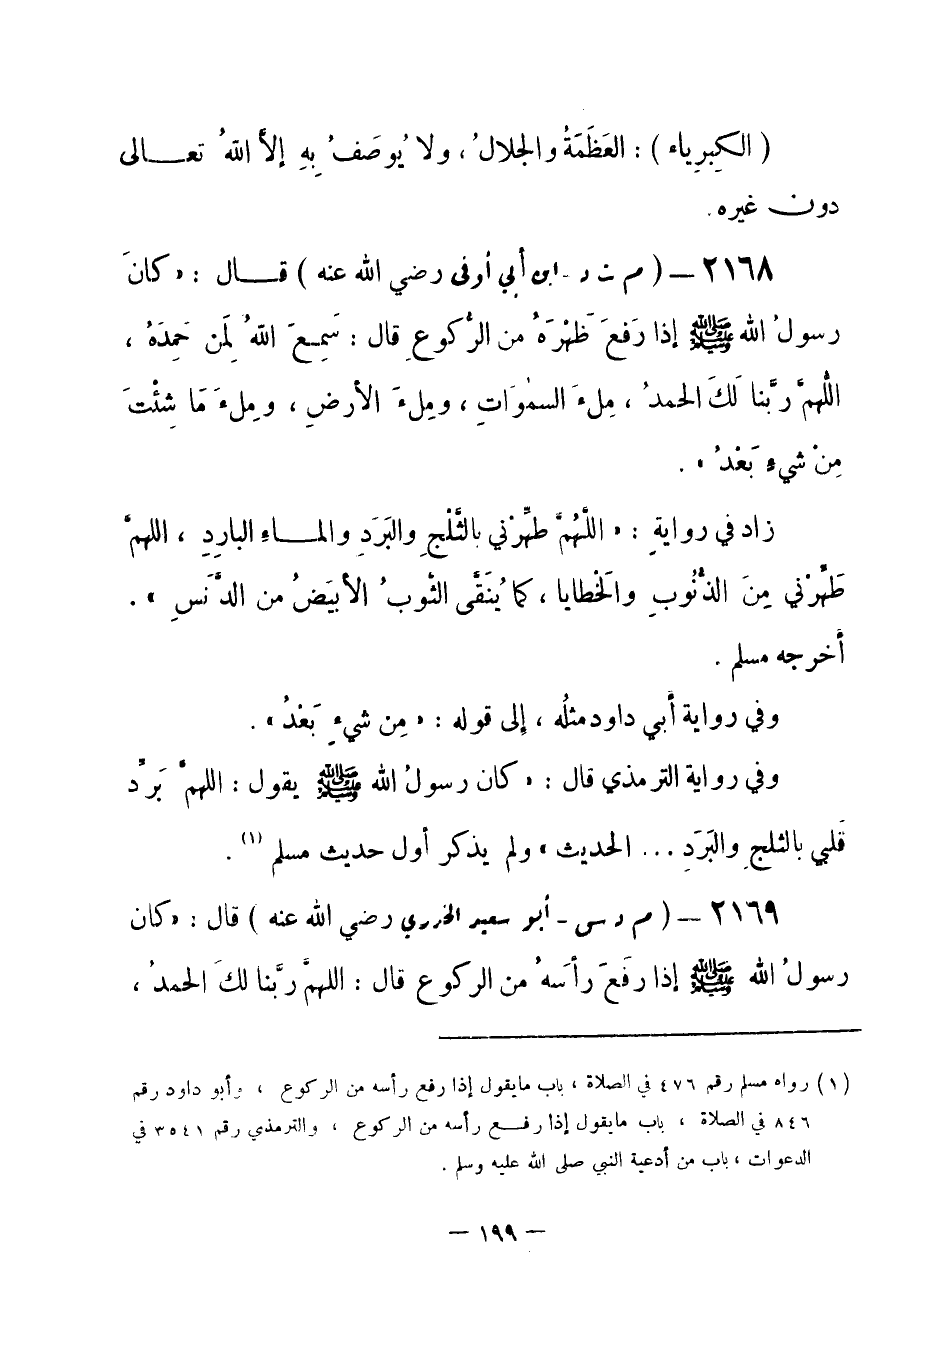 ( الكِبرِياء ) : العَظَمَةُ والجلالُ ، ولا يُوصَفُ بِهِ إلاَّ اللهُ تعـــالى
دون غيره .
٢١٦٨ – ( م ت د - ابن أبي أوفى رضي الله عنه ) قـــال : « كانَ
رسولُ الله ﷺ إذا رَفعَ ظهْرَهُ من الرُّكوعِ قال : سَمِعَ اللهُ لِمَن حَمِدَهُ ،
اللَّهمَّ ربَّنا لَكَ الحمدُ ، مِلءَ السمٰوَاتِ ، ومِلءَ الأرضِ ، ومِلءَ مَا شِئْتَ
مِنْ شيءٍ بَعْدُ » .
زاد في روايةٍ : « اللَّهُمَّ طهِّرْني بالثَّلْجِ والبَرَدِ والمـــاءِ الباردِ ، اللهمَّ
طَهِّرْني مِنَ الذُّنُوبِ والخَطايا ، كما يُنَقَّى الثوبُ الأبيَضُ من الدَّنَسِ » .
أخرجه مسلم .
وفي رواية أبي داود مثلُه ، إلى قوله : « مِن شيءٍ بَعْدُ » .
وفي رواية الترمذي قال : « كان رسولُ الله ﷺ يقول : اللهمَّ بَرِّد
قَلبي بالثلجِ والبَرَدِ ... الحديث » ولم يذكر أول حديث مسلم (١) .
٢١٦٩ – ( م د س - أبو سعيد الخدري رضي الله عنه ) قال : « كان
رسولُ الله ﷺ إذا رفَعَ رأسَهُ من الركوع قال : اللهمَّ ربَّنا لكَ الحمدُ ،
(١) رواه مسلم رقم ٤٧٦ في الصلاة ، باب مايقول إذا رفع رأسه من الركوع ، وأبو داود رقم
٨٤٦ في الصلاة ، باب مايقول إذا رفـــع رأسه من الركوع ، والترمذي رقم ٣٥٤١ في
الدعوات ، باب من أدعية النبي صلى الله عليه وسلم .
– ١٩٩ –